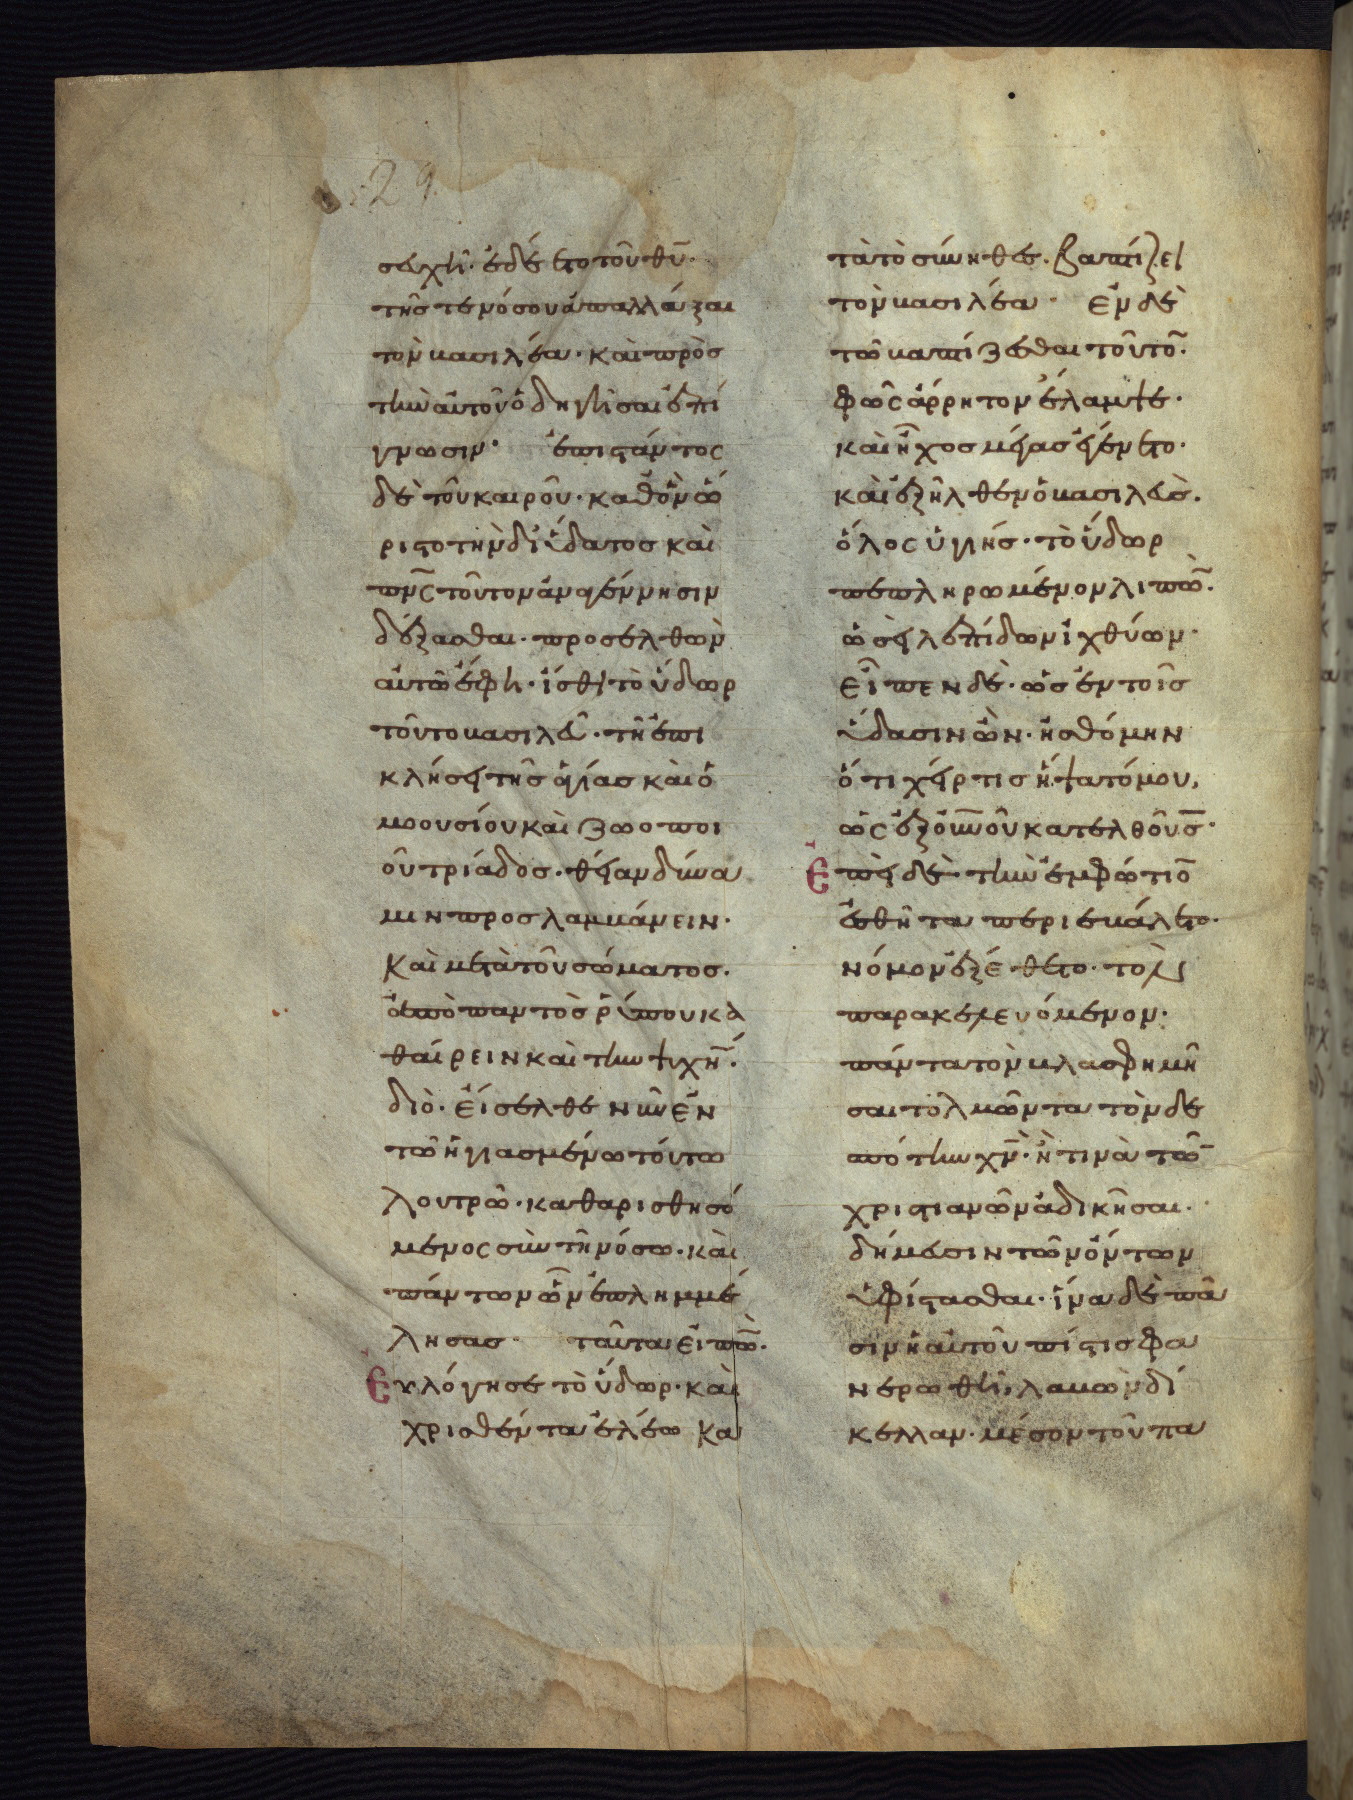 29
σευχῆ· ἐδέετο τοῦ θῦ·
τῆς τε νόσου ἀπαλλάξαι
τὸν βασιλέα· καὶ πρὸς
τὴν αὐτοῦ ὁδηγῆσαι ἐπί
γνωσιν· ἐπιστάντος
δὲ τοῦ καιροῦ· καθ' ὃν ὥ
ριστο τὴν δι' ὕδατος καὶ
πν̅ς τοῦτον ἀναγέννησιν
δέξασθαι· προσελθὼν
αὐτῶ ἔφη· ἴσθι τὸ ὕδωρ
τοῦτο βασιλεῦ· τῆ ἐπι
κλήσει τῆς ἁγίας καὶ ὁ
μοουσίου καὶ ζωοποι
οῦ τριάδος· θείαν δύνα
μιν προσλαμβάνειν·
καὶ μετὰ τοῦ σώματος·
ἀπὸ παντὸς ῥύπου κα
θαίρειν καὶ τὴν ψυχήν·
διὸ· εἴσελθε νῦν ἐν
τῶ ἡγιασμένω τούτω
λουτρῶ· καθαρισθησό
μενος σὺν τῆ νόσω· καὶ
πάντων ὧν ἐπλημμέ
λησας· ταῦτα εἰπὼ̅·
Εὐλόγησε τὸ ὕδωρ· καὶ
χρισθέντα ἐλέω κα
τὰ τὸ σύνηθες· βαπτίζει
τὸν βασιλέα· Ἐν δὲ
τῶ βαπτίζεσθαι τοῦτο̅·
φῶς ἄρρητον ἔλαμψε·
καὶ ἦχος μέγας ἐγένετο·
καὶ ἐξῆλθεν ὁ βασιλεὺς·
ὅλος ὑγιής· τὸ ὕδωρ
πεπληρωμένον λιπὼ̅·
ὡσεὶ λεπίδων ἰχθύων·
Εἶπεν δὲ· ὡς ἐν τοῖς
ὕδασιν ὢν· ἠσθόμην
ὅτι χείρ τις ἥψατό μου,
ὡς ἐξ οὐ̅νοῦ κατελθοῦσ̅·
Ἐπεὶ δὲ τὴν ἐμφώτιο̅
ἐσθῆτα περιεβάλετο·
νόμον ἐξέθετο· τοῖς
παρακελευόμενον·
πάντα τὸν βλασφημῆ
σαι τολμῶντα τὸν δε
σπότην χν̅· ἢ τινὰ τῶ̅
χριστιανῶν ἀδικῆσαι·
δήμευσιν τῶν ὄντων
ὑφίστασθαι· ἵνα δὲ πᾶ
σιν ἡ αὐτοῦ πίστις φα
νερωθῆ, λαβὼν δί
κελλαν· μέσον τοῦ πα